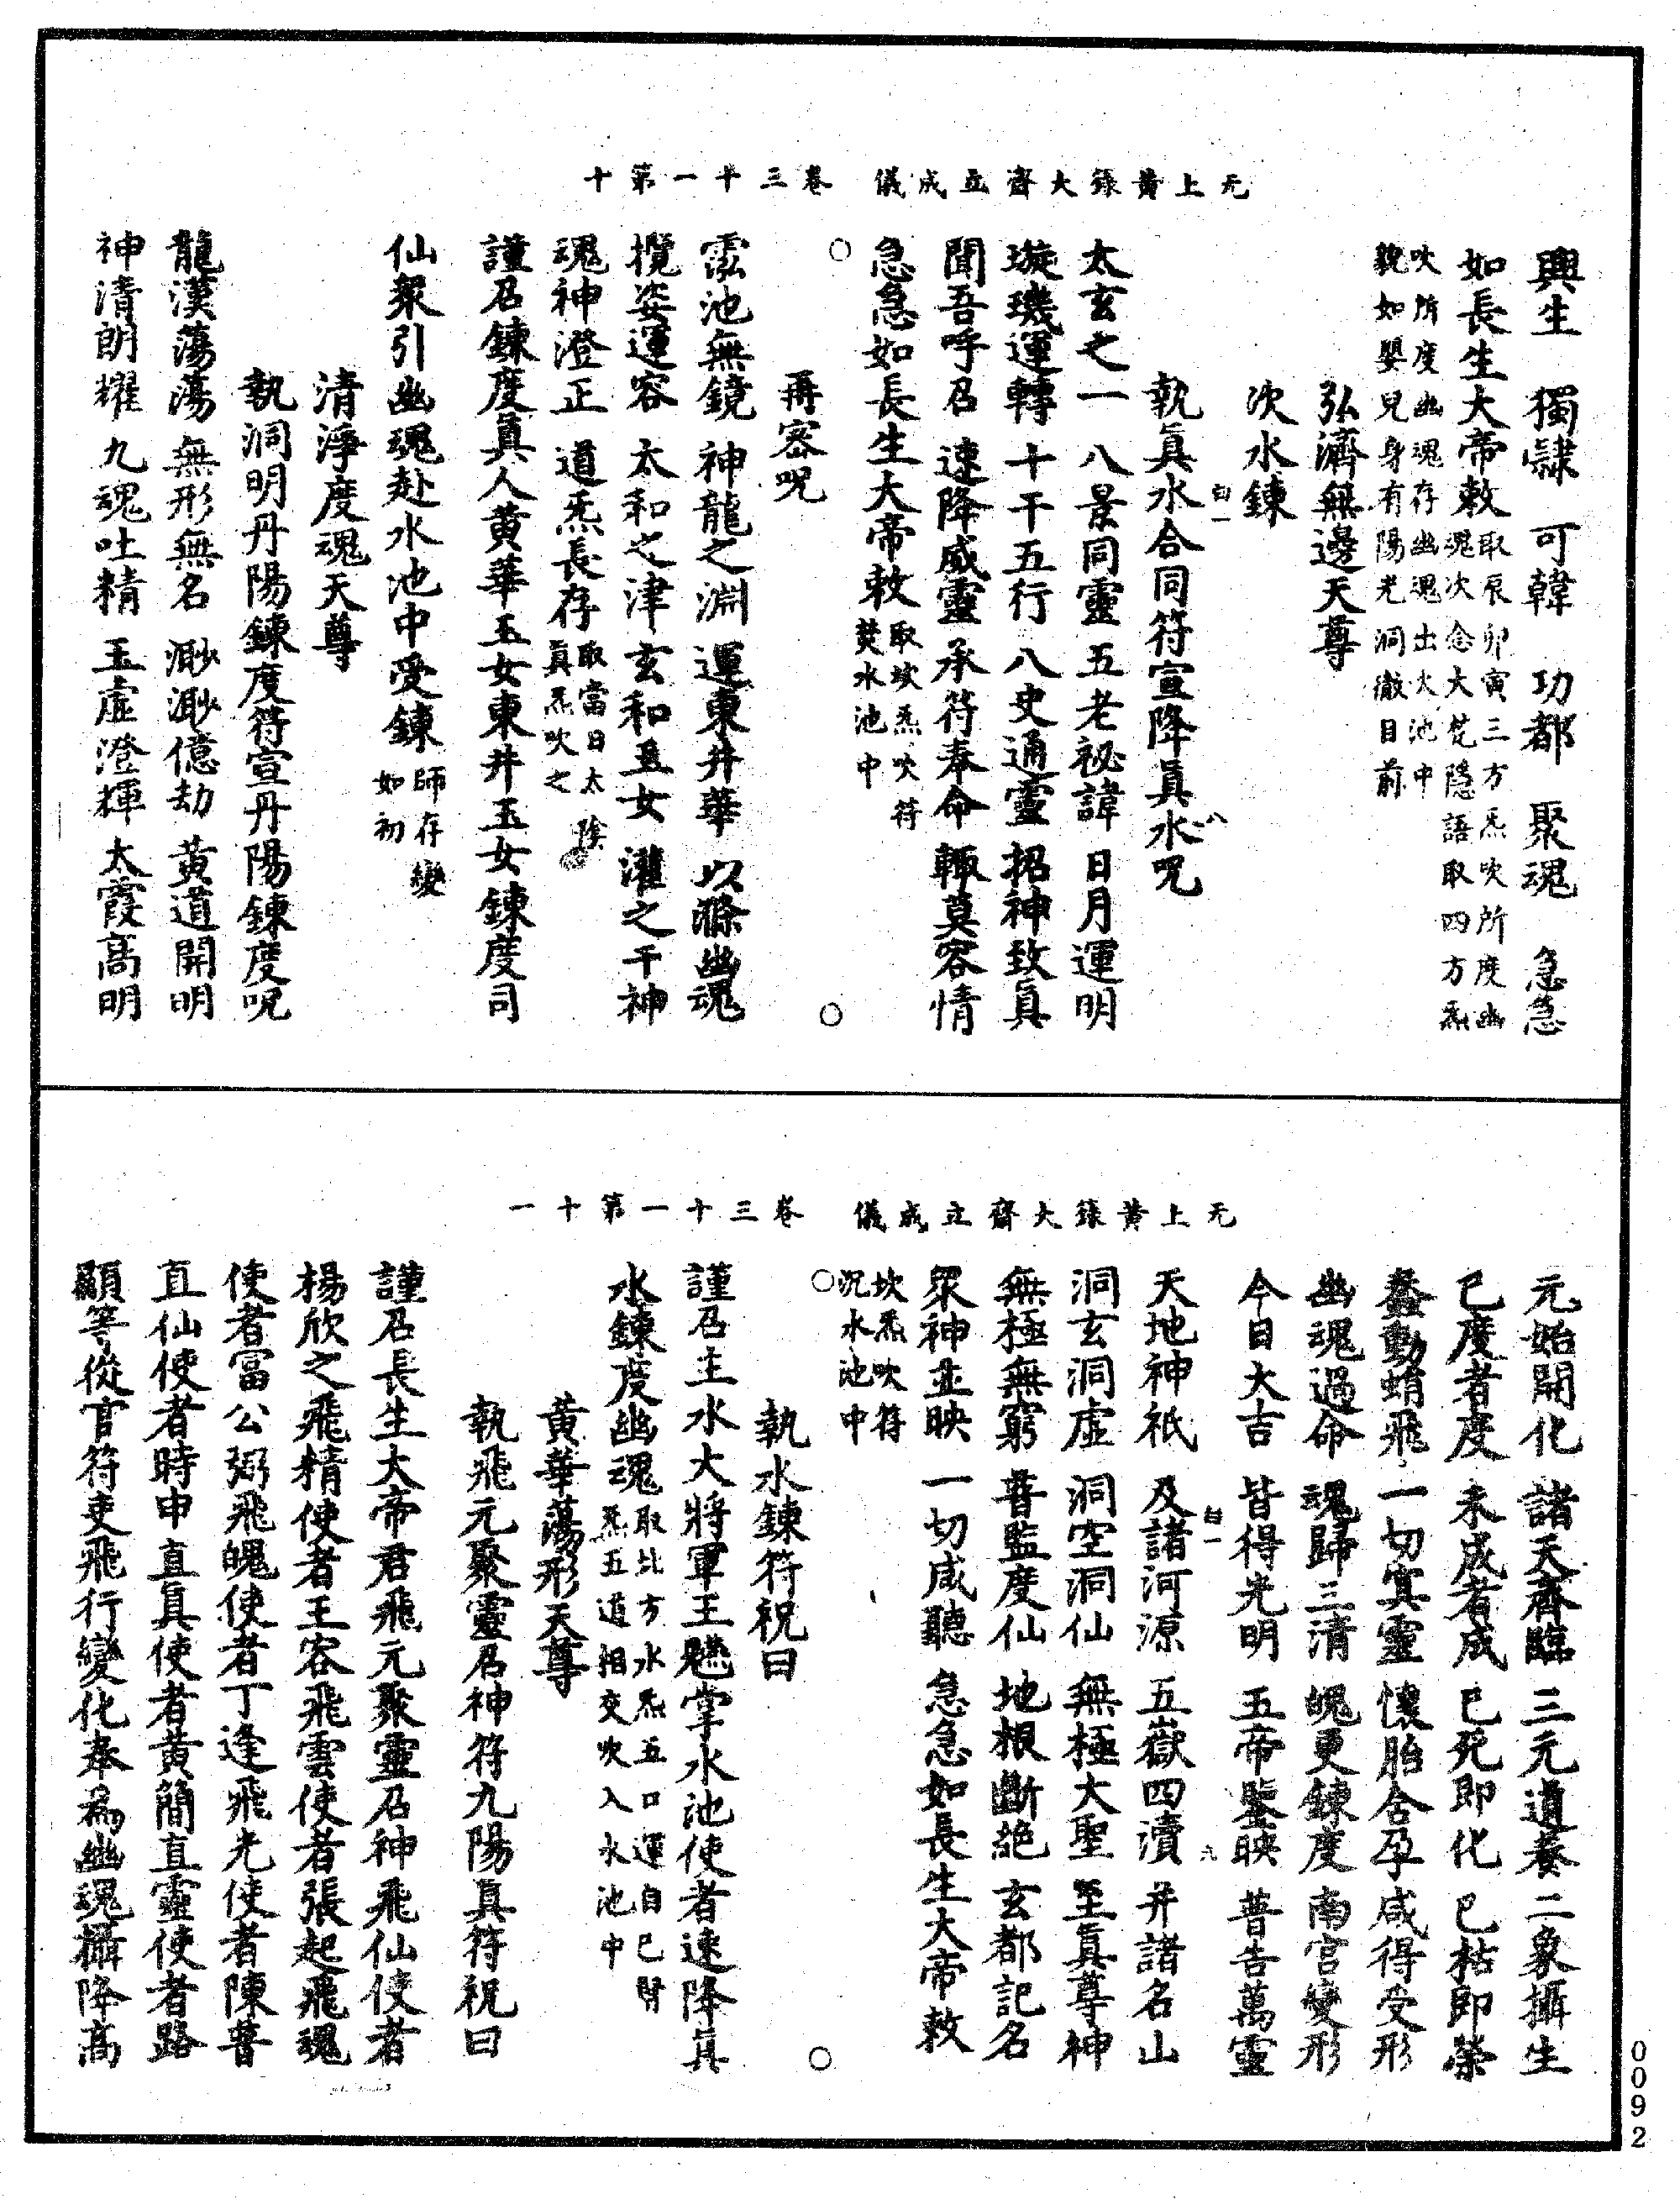 无上黃籙大齋立成儀　卷三十一第十
興生　獨隸　可韓　功都　聚魂　急急
如長生大帝敕取辰卯寅三方炁吹所度幽魂次念大梵隱語取四方炁
吹所度幽魂存幽魂出火池中貌如嬰兒身有陽光洞徹目前
弘濟無邊天尊
次水鍊
執真水合同符宣降真水呪
太玄之一　八景同靈　五老祕諱　日月運明
璇璣運轉　十干五行　八史通靈　招神致真
聞吾呼召　速降威靈　承符奉命　輒莫容情
急急如長生大帝敕取坎炁吹符焚水池中
○　○
再密呪
澐池無鏡　神龍之淵　運東井華　以滌幽魂
攬姿運容　太和之津　玄和玉女　灌之千神
魂神澄正　道炁長存取當日太陰真炁吹之
謹召鍊度真人黃華玉女東井玉女鍊度司
仙眾引幽魂赴水池中受鍊師存變如初
清淨度魂天尊
執洞明丹陽鍊度符宣丹陽鍊度呪
龍漢蕩蕩　無形無名　渺渺億劫　黃道開明
神清朗耀　九魂吐精　玉虛澄輝　太霞高明
无上黃籙大齋立成儀　卷三十一第十一
元始開化　諸天齊臨　三元道養　二象攝生
已度者度　未成者成　已死即化　已枯即榮
蠢動蜎飛　一切冥靈　懷胎含孕　咸得受形
幽魂過命　魂歸三清　魄更鍊度　南宮變形
今日大吉　皆得光明　五帝鑒映　普告萬靈
天地神祇　及諸河源　五嶽四瀆　并諸名山
洞玄洞虛　洞空洞仙　無極大聖　至真尊神
無極無窮　普監度仙　地根斷絕　玄都記名
眾神並映　一切咸聽　急急如長生大帝敕
坎炁吹符沉水池中
○　○
執水鍊符祝曰
謹召主水大將軍王魒掌水池使者速降真
水鍊度幽魂取北方水炁五口運自己腎炁五道相交吹入水池中
黃華蕩形天尊
執飛元聚靈召神符九陽真符祝曰
謹召長生大帝君飛元聚靈召神飛仙使者
楊欣之飛精使者王客飛雲使者張起飛魂
使者富公弼飛魄使者丁逢飛光使者陳普
直仙使者時申直真使者黃簡直靈使者路
顯等從官符吏飛行變化奉為幽魂攝降高
0092